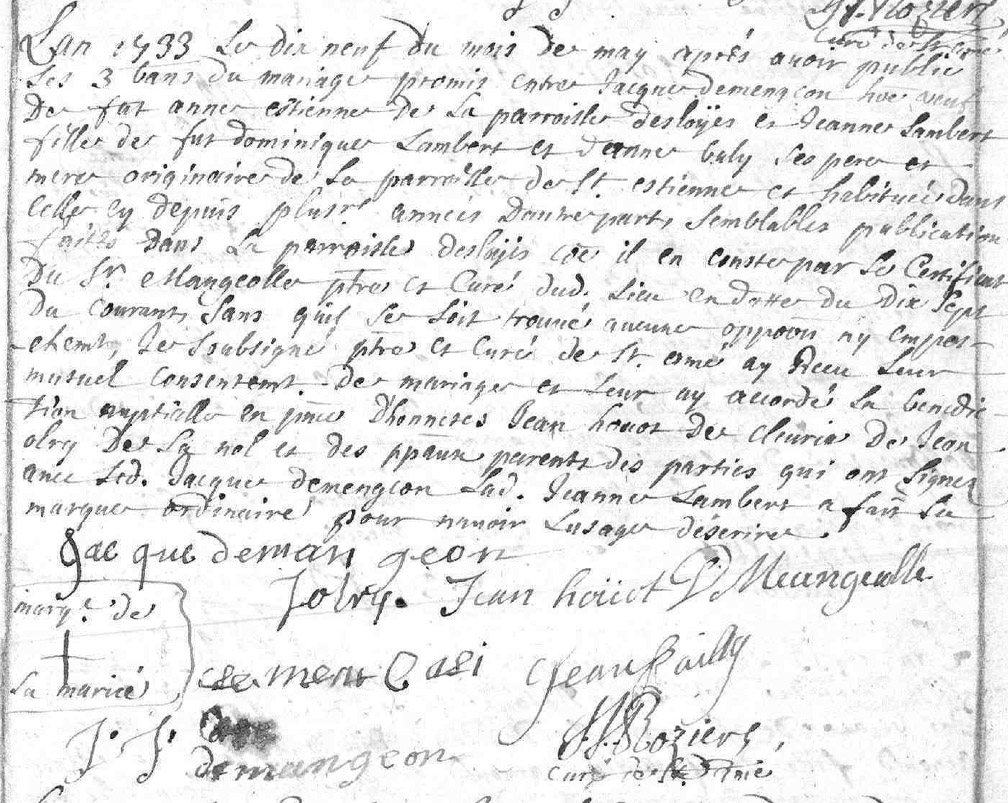 J. Roziere
curé de St Amé
Lan 1733 Le dix neuf du mois de may aprés avoir publié
Les 3 bans du mariage promis entre Jacque demengeon veuf
De fut anne estienne de La parroisse desloÿes et Jeanne Lambert
fille de fut dominique Lambert et Jeanne ses pere et
mere originaire de La parroisse de St. estienne et habitués dans
celle cy depuis plusrs années Dautre part, semblables publications
faittes dans La parroisse desloÿes cõe il en conste par Le Certificat
Du Sr. Mangeolle ptre et Curé dud. Lieu en datte du dix Sept
Du Courant, Sans quil se soit trouvé aucune opposõn ny empes-
chemt, Je soubsigné ptre et Curé de St. amé ay Receu Leur
mutuel Consentemt de mariage et Leur ay accordé La benedic
tion nuptialle en pnce Dhonnetes Jean houot De Cleurie De Jean
olry De La nol et des ppaux parents des parties qui ont Signez
avec Led. Jacque demengeon Lad. Jeanne Lambert a fait Sa
marque ordinaire pour navoir Lusage descrire.
Jac que deman geon
J olry. Jean hoüot D Meangeolle
marq. de
La mariée
Jean failly
J. J. demangeon
J. Roziere,
curé de St Amé